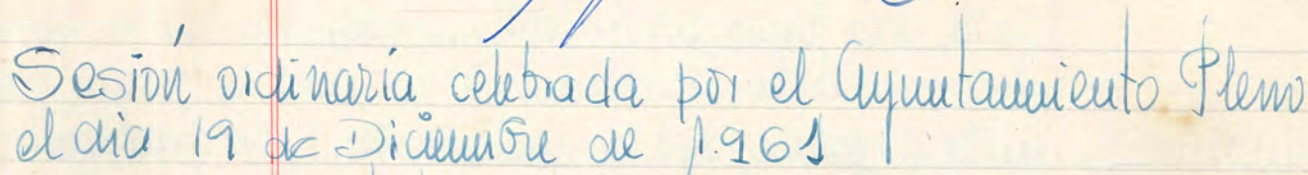 Sesión ordinaria celebrada por el Ayuntamiento Pleno
el dia 19 de Diciembre de 1.961